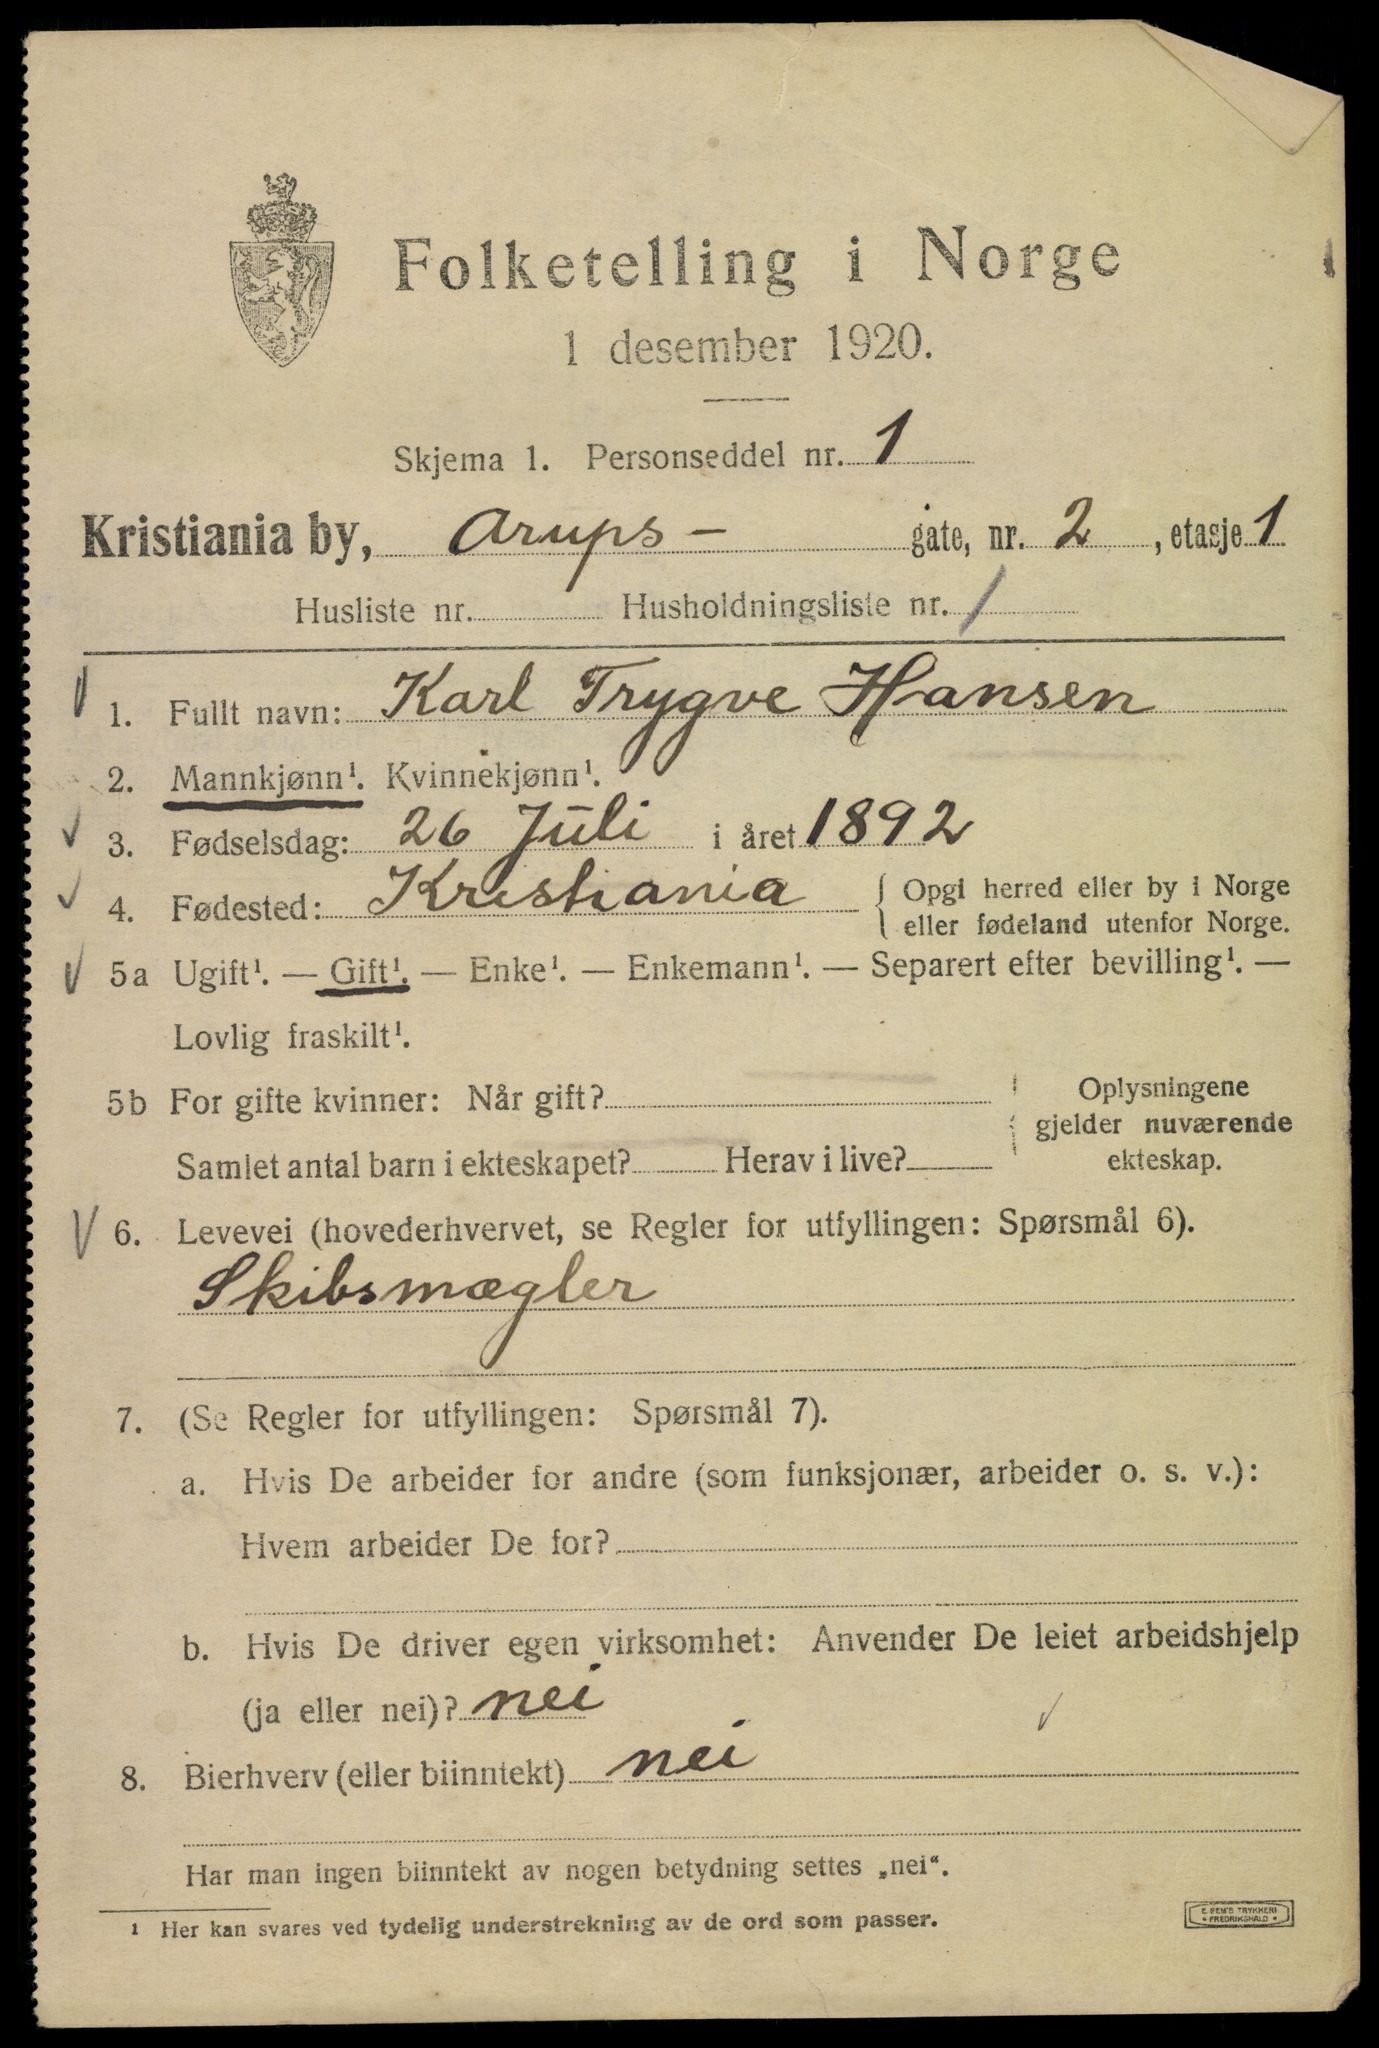 Folketelling i Norge
1 desember 1920.
Skjema 1. Personseddel nr. 1
Kristiania by, Arups- gate, nr. 2, etasje 1
Husliste nr. Husholdningsliste nr. 1
1. Fullt navn: Karl Trygve Hansen
2. Mannkjønn¹. Kvinnekjønn¹.
3. Fødselsdag: 26 Juli i året 1892
4. Fødested: Kristiania { Opgi herred eller by i Norge
eller fødeland utenfor Norge.
5a Ugift¹. — Gift¹. — Enke¹. — Enkemann¹. — Separert efter bevilling¹. —
Lovlig fraskilt¹.
5b For gifte kvinner: Når gift? Oplysningene
gjelder nuværende
Samlet antal barn i ekteskapet? Herav i live? ekteskap.
6. Levevei (hovederhvervet, se Regler for utfyllingen: Spørsmål 6).
Skibsmægler
7. (Se Regler for utfyllingen: Spørsmål 7).
a. Hvis De arbeider for andre (som funksjonær, arbeider o. s. v.):
Hvem arbeider De for?
b. Hvis De driver egen virksomhet: Anvender De leiet arbeidshjelp
(ja eller nei)? nei
8. Bierhverv (eller biinntekt) nei
Har man ingen biinntekt av nogen betydning settes „nei“.
¹ Her kan svares ved tydelig understrekning av de ord som passer.
E. SEM'S TRYKKERI
FREDRIKSHALD